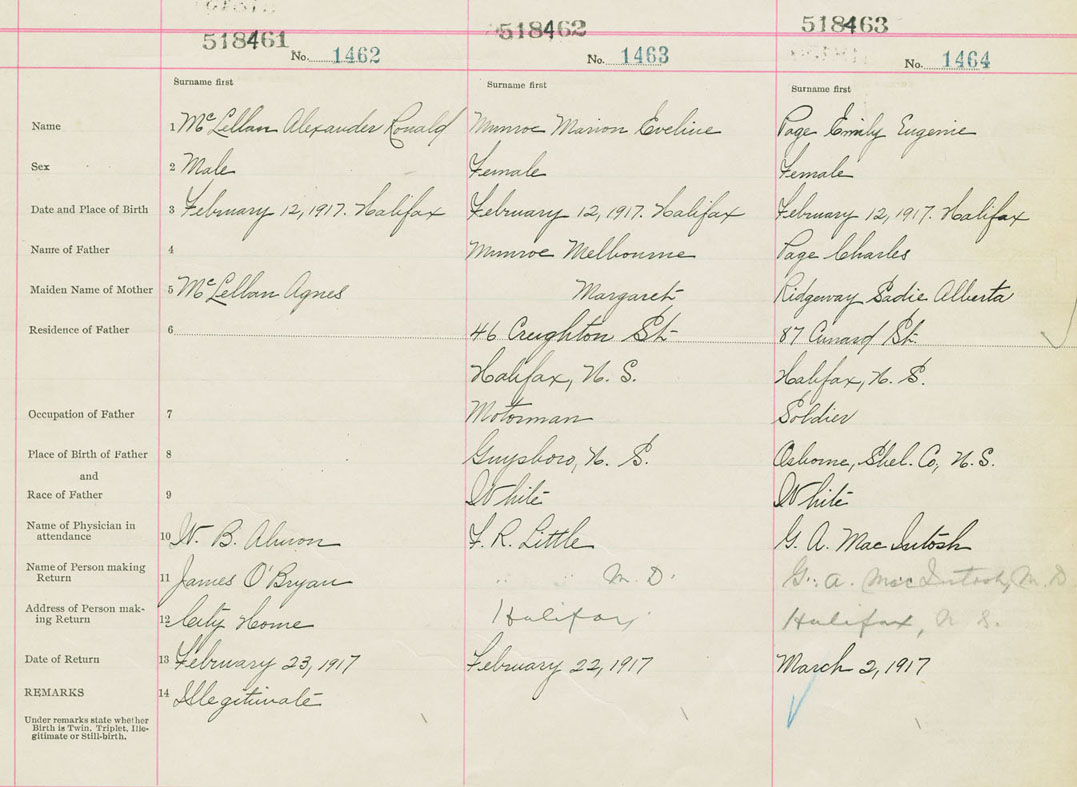 518461 518462 518463
No. 1462 No. 1463 No. 1464
Surname first Surname first Surname first
Name 1 McLellan Alexander Ronald Munroe Marion Eveline Page Emily Eugenie
Sex 2 Male Female Female
Date and Place of Birth 3 February 12, 1917. Halifax February 12, 1917. Halifax February 12, 1917. Halifax
Name of Father 4 Munroe Melbourne Page Charles
Maiden Name of Mother 5 McLellan Agnes Margaret Ridgeway Sadie Alberta
Residence of Father 6 46 Creighton St. 87 Cunard St.
Halifax, N. S. Halifax, N. S.
Occupation of Father 7 Motorman Soldier
Place of Birth of Father 8 Guysboro, N. S. Osborne, Shel. Co, N. S.
and
Race of Father 9 White White
Name of Physician in
attendance 10 W. B. Almon F. R. Little G. A. MacIntosh
Name of Person making
Return 11 James O'Bryan " " M. D. G. A. MacIntosh, M. D
Address of Person mak-
ing Return 12 City Home Halifax Halifax, N. S.
Date of Return 13 February 23, 1917 February 22, 1917 March 2, 1917
REMARKS 14 Illegitimate
Under remarks state whether
Birth is Twin, Triplet, Ille-
gitimate or Still-birth.